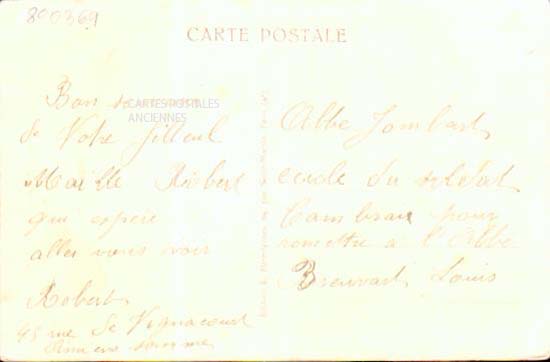 800369
CARTE POSTALE
CARTES POSTALES
ANCIENNES
Bon
de Votre filleul
Maille Robert
qui espère
aller vous voir
Robert
45 rue de Vignacourt
Amiens Somme
Abbé Jombart
cercle du soldat
Cambrai pour
remettre a l'Abbé
Breuvart Louis